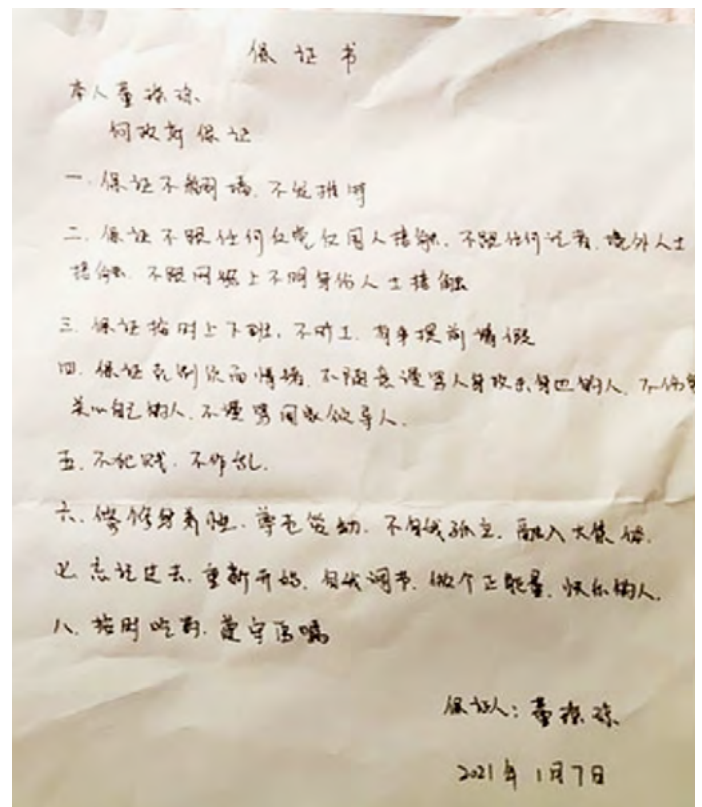 保证书
本人董瑶琼
向政府保证
一. 保证不翻墙. 不发推特
二. 保证不跟任何反党反国人接触. 不跟任何记者. 境外人士
接触. 不跟网络上不明身份人士接触
三. 保证按时上下班, 不旷工. 有事提前请假
四. 保证克制负面情绪. 不随意谩骂人身攻击身边的人. 不伤害
关心自己的人. 不谩骂国家领导人.
五. 不犯贱. 不作乱.
六. 修身养性. 尊老爱幼. 不自我孤立. 融入大集体.
七 忘记过去. 重新开始. 自我调节. 做个正能量. 快乐的人.
八. 按时吃药. 遵守医嘱
保证人: 董瑶琼
2021年1月7日